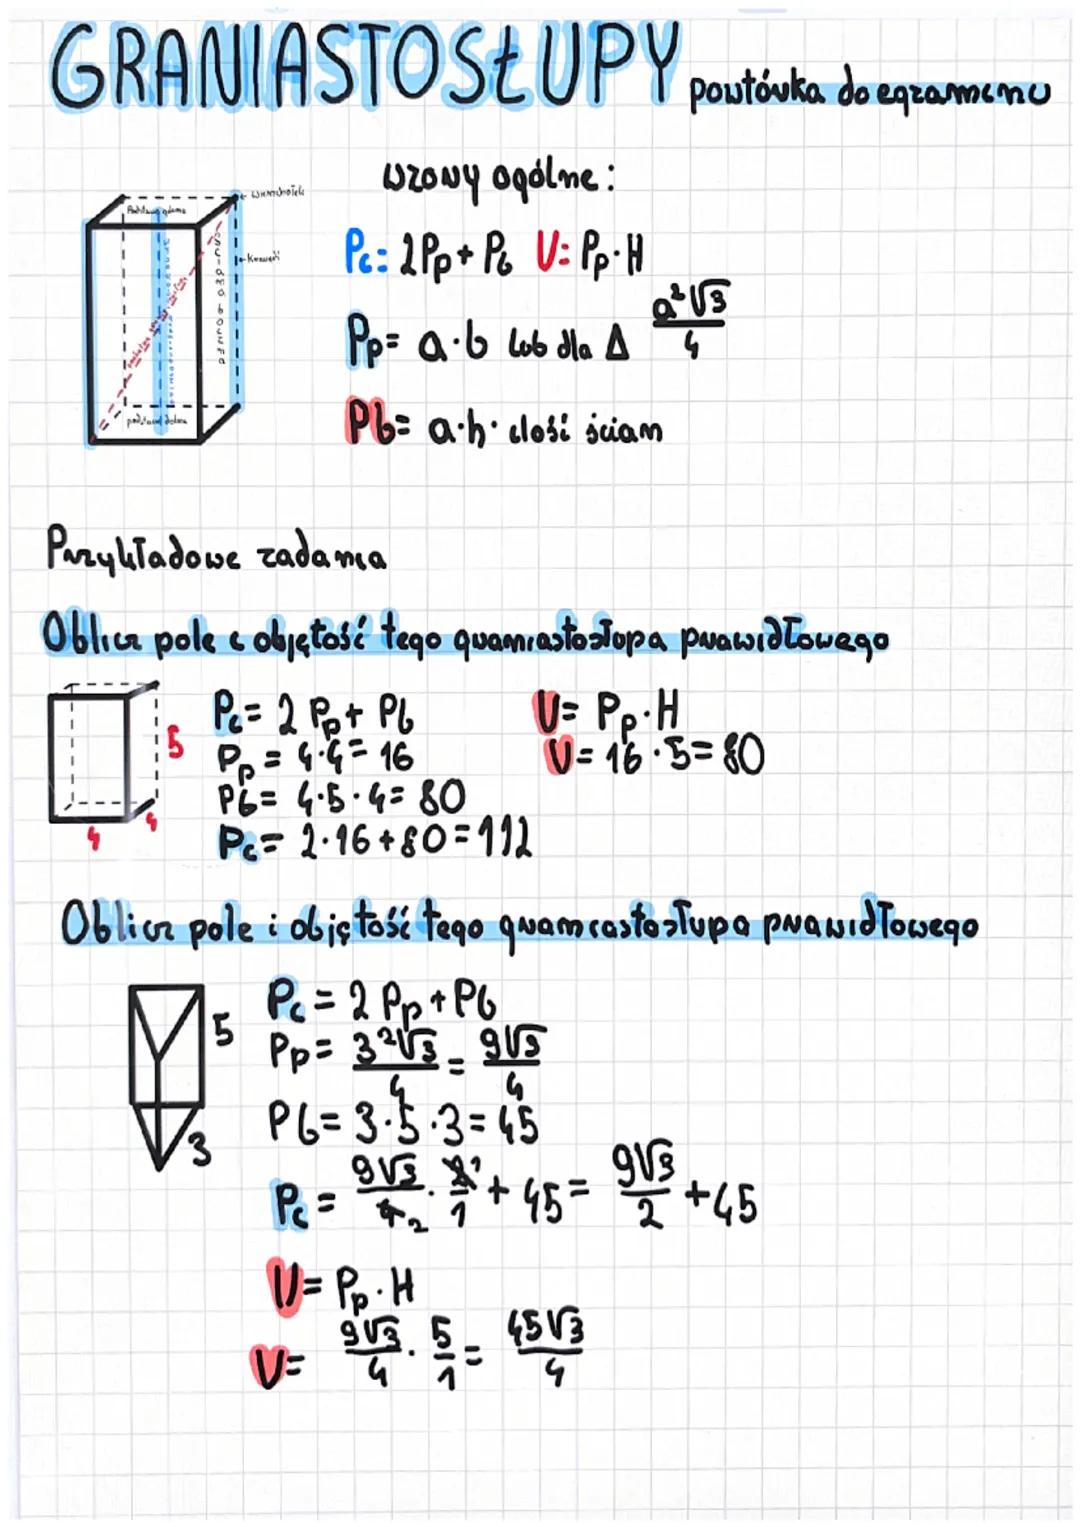 GRANIASTOSŁUPY powtórka do egzaminu
wzory ogólne:
wierzchołek
Podstawa górna
krawędź
ściana boczna
podstawa dolna
Pc= 2Pp+ Pb V= Pp·H
Pp= a·b lub dla Δ a²√3/4
Pb= a·h· ilość ścian
Przykładowe zadania
Oblicz pole i objętość tego graniastosłupa prawidłowego
5
4
4
Pc= 2 Pp+ Pb
Pp= 4·4= 16
Pb= 4·5·4= 80
Pc= 2·16+80=112
V= Pp·H
V= 16·5=80
Oblicz pole i objętość tego graniastosłupa prawidłowego
5
3
Pc = 2 Pp+Pb
Pp= 3²√3/4 = 9√3/4
Pb= 3·5·3=45
Pc = 9√3/4 2 · 2 1/1 + 45= 9√3/2 +45
V= Pp·H
V= 9√3/4 · 5/1 = 45√3/4